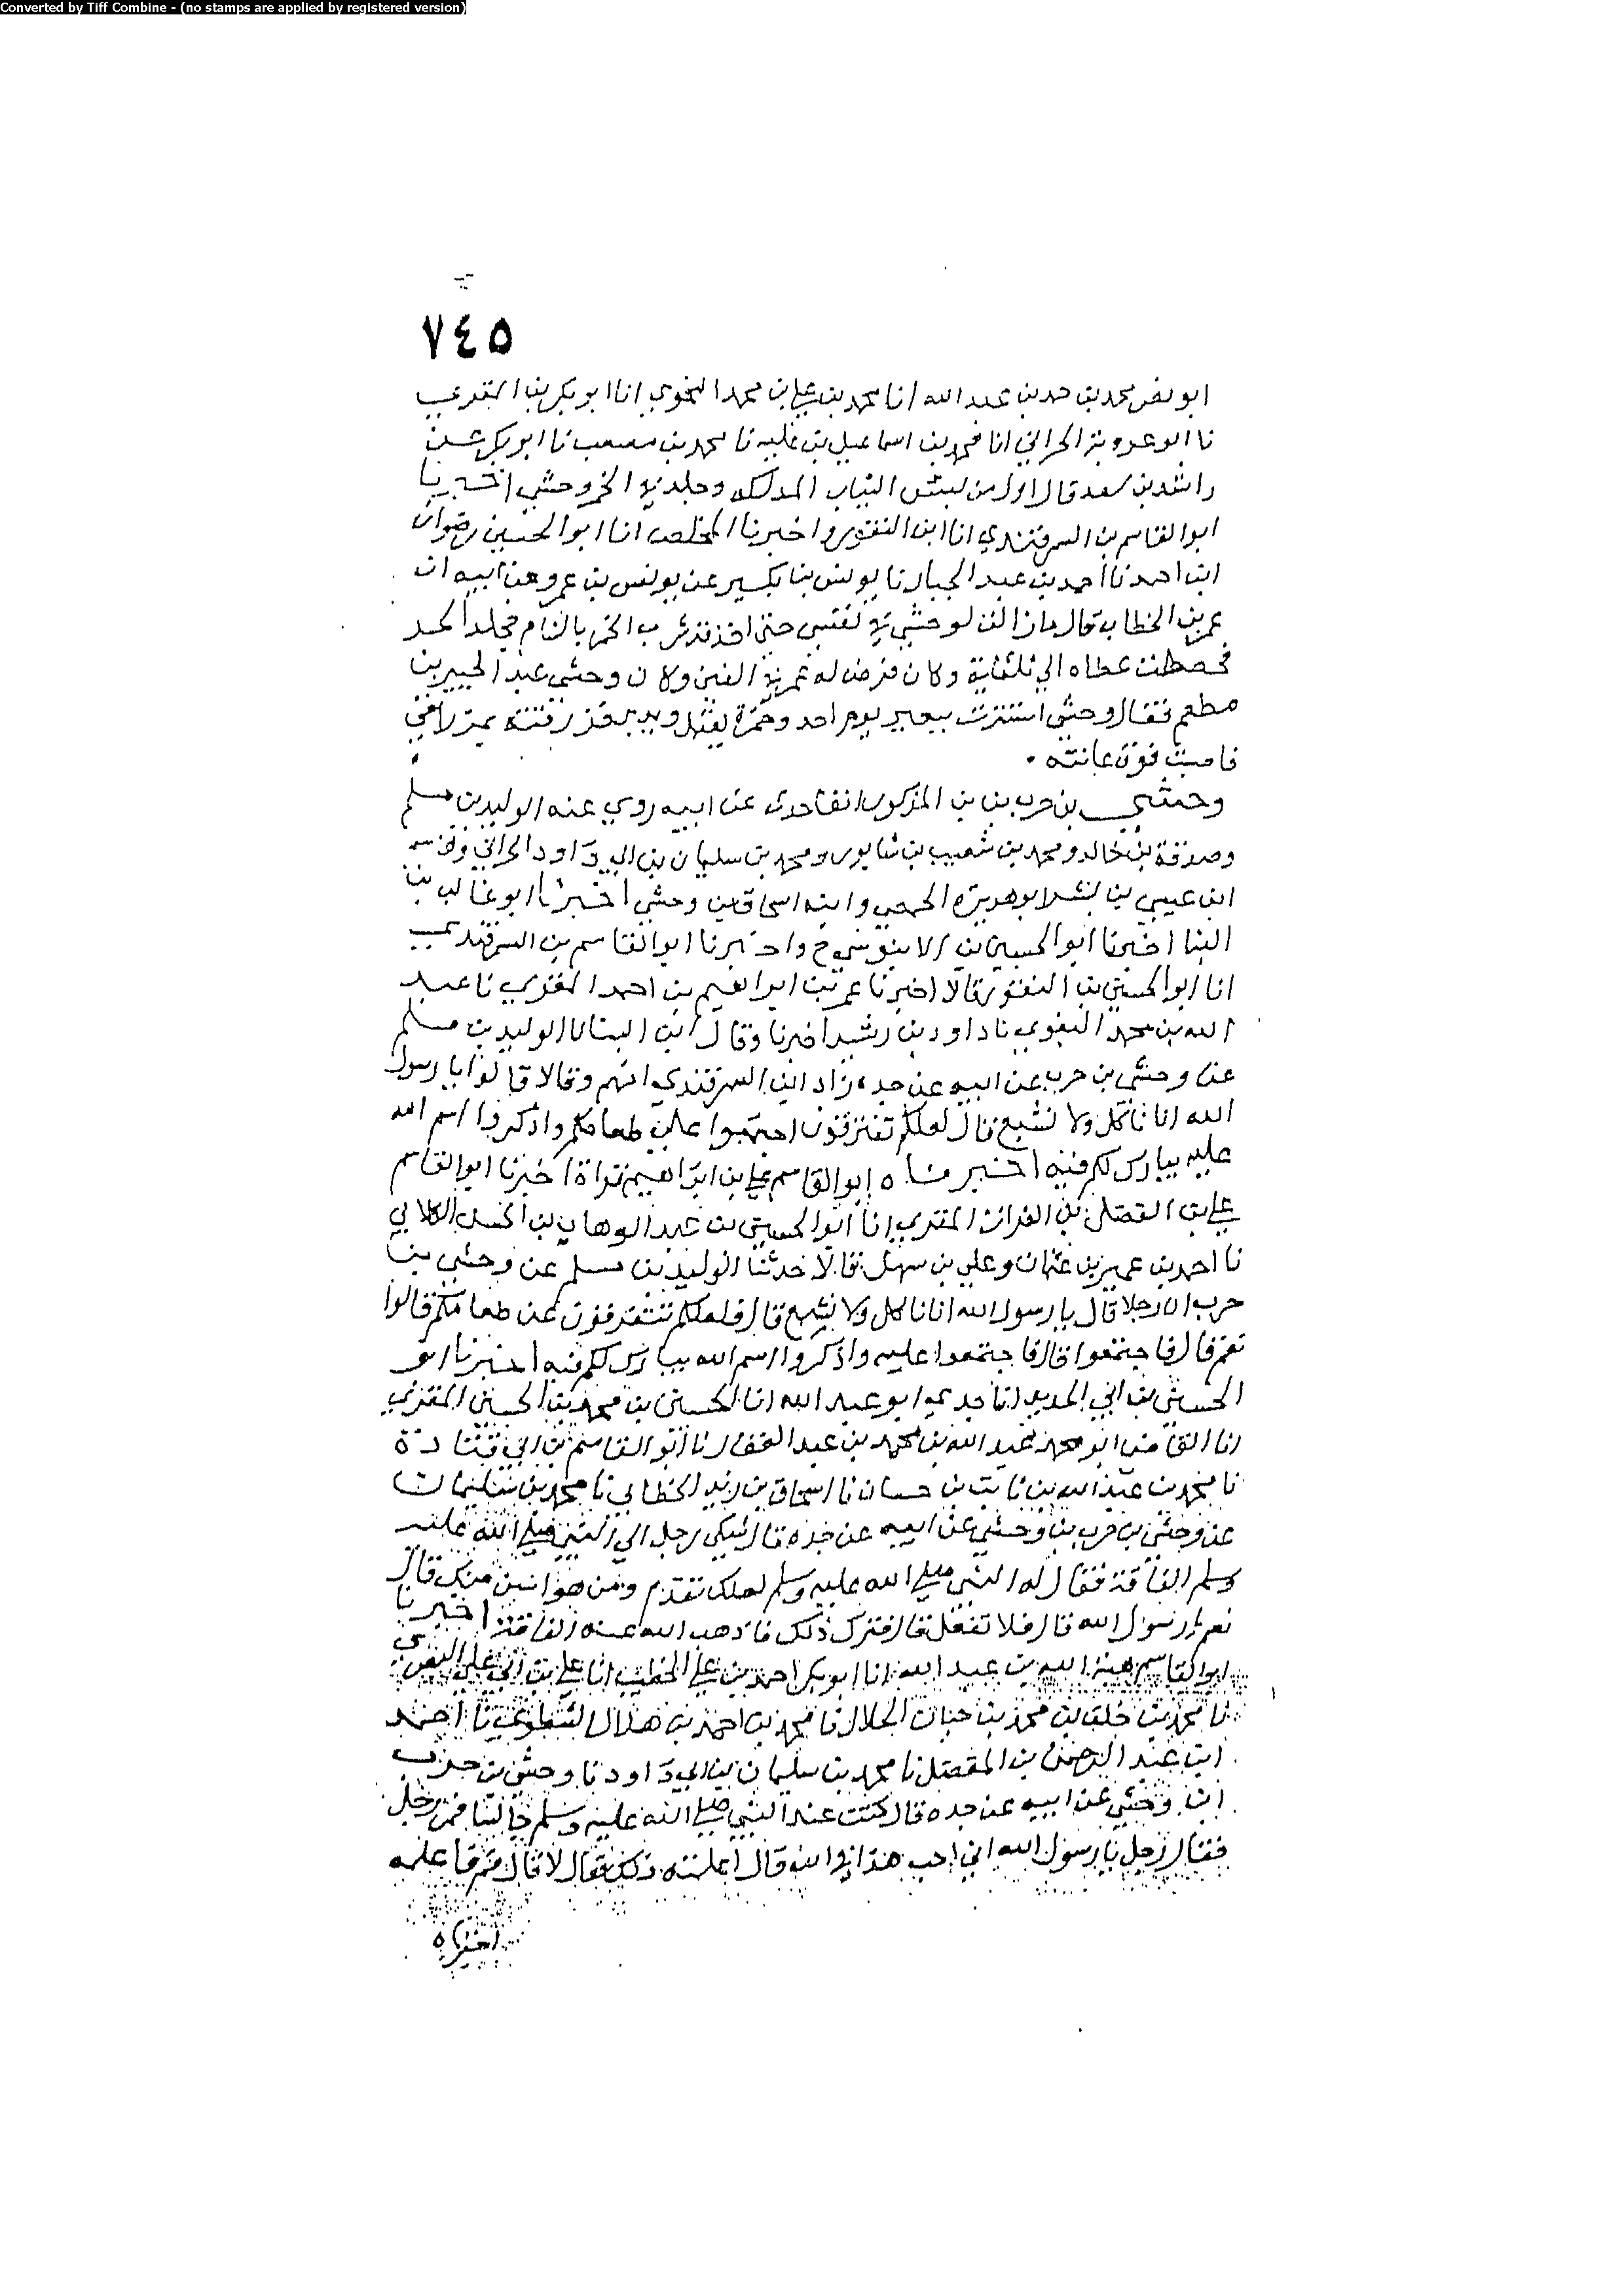 Converted by Tiff Combine - (no stamps are applied by registered version)
٧٤٥
ابو نصر محمد بن حمد بن عبد الله انا محمد بن علي بن محمد النحوي انا ابو بكر بن المقري
نا ابو عروبة الحراني انا محمد بن اسماعيل بن علية نا محمد بن مصعب نا ابو بكر عن
راشد بن سعد قال اول من لبس الثياب المدلكه وجلد في الخمر وحشي اخبرنا
ابو القاسم بن السمرقندي انا ابن النقور واخبرنا المخلص انا ابو الحسين رضوان
ابن احمد نا احمد بن عبد الجبار نا يونس بن بكير عن يونس بن عمرو عن ابيه ان
عمر بن الخطاب قال ما زالت لوحشي في نفسي حتى اخذ قد شرب الخمر بالشام فجلد الحد
فحططت عطاه الى ثلثماية وكان فرض له عمر في الفين وكان وحشي عبد الجبير بن
مطعم فقال وحشي استترت ببعير يوم احد وحمزة يقتل ويدبر فزرقته بمزراقي
فاصبت فوق عانته
وحشي بن حرب بن المذكور انفا حدث عن ابيه روى عنه الوليد بن مسلم
وصدقة بن خالد ومحمد بن شعيب بن شابور ومحمد بن سليمان بن ابي داود الحراني
ابن عيسى بن ابو هريرة الحمصي وابنه اسحاق بن وحشي اخبرنا ابو غالب بن
البنا اخبرنا ابو الحسين بن الابنوسي ح واخبرنا ابو القاسم بن السمرقندي
انا ابو الحسين بن النقور قالا اخبرنا عمر بن ابراهيم بن احمد المقري نا عبد
الله بن محمد البغوي نا داود بن رشيد اخبرنا وقال ابن البنا نا الوليد بن مسلم
عن وحشي بن حرب عن ابيه عن جده زاد ابن السمرقندي انهم وقالا قالوا يا رسول
الله انا ناكل ولا نشبع قال لعلكم تفترقون اجتمعوا على طعامكم واذكروا اسم الله
عليه يبارك لكم فيه اخبرناه ابو القاسم علي بن ابراهيم قراة اخبرنا ابو القاسم
علي بن الفضل بن الفرات المقري انا ابو الحسين بن عبد الوهاب بن الحسن الكلابي
نا احمد بن عمير بن عثمان وعلي بن سهل قالا حدثنا الوليد بن مسلم عن وحشي بن
حرب ان رجلا قال يا رسول الله انا ناكل ولا نشبع قال فلعلكم تفترقون عن طعامكم قالوا
نعم قال فاجتمعوا قال فاجتمعوا عليه واذكروا اسم الله يبارك لكم فيه اخبرنا ابو
الحسين بن ابي الحديد انا جدي ابو عبد الله انا الحسين بن محمد بن الحسين المقري
انا القاضي ابو محمد عبد الله بن محمد بن عبد الغفار نا ابو القاسم بن ابي قتادة
نا محمد بن عبد الله بن ثابت بن حسان نا اسحاق بن زيد الخطابي نا محمد بن سليمان
عن وحشي بن حرب بن وحشي عن ابيه عن جده قال شكى رجل الى النبي صلى الله عليه
وسلم الفاقة فقال له النبي صلى الله عليه وسلم لعلك تقدم ومن هو اسن منك قال
نعم يا رسول الله قال فلا تفعل قال فترك ذلك فاذهب الله عنه الفاقة اخبرنا
ابو القاسم هبة الله بن عبد الله انا ابو بكر احمد بن علي الخطيب انا علي بن ابي علي البصري
نا محمد بن خلف بن محمد بن حيان الخلال نا محمد بن احمد بن هلال الشطوي نا احمد
ابن عبد الرحمن بن المفضل نا محمد بن سليمان بن ابي داود نا وحشي بن حرب
ابن وحشي عن ابيه عن جده قال كنت عند النبي صلى الله عليه وسلم جالسا فمر رجل
فقال رجل يا رسول الله اني احب هذا في الله قال اعلمته ذلك فقال لا قال قم فاعلمه
اخبرناه